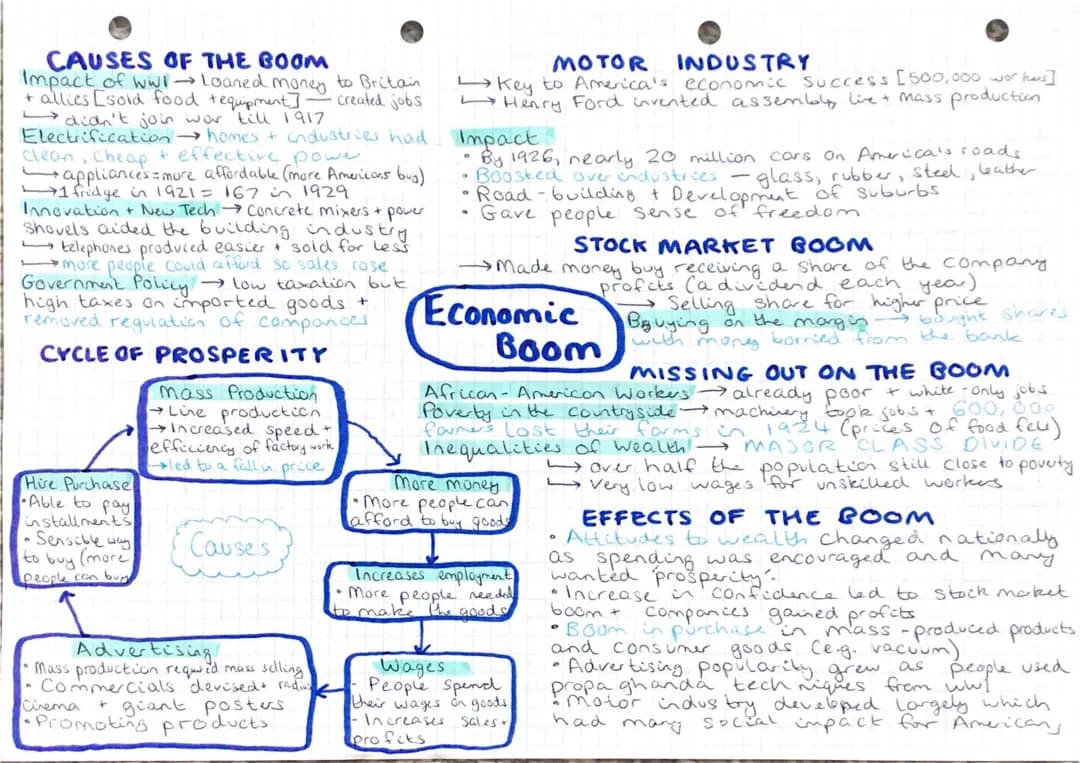 CAUSES OF THE BOOM
Impact of WWI → Loaned money to Britain
+ allies [sold food + equipment] — created jobs
↳ didn't join war till 1917
Electrification → homes + industries had
clean, cheap + effective power
↳ appliances = more affordable (more Americans buy)
↳ 1 fridge in 1921 = 167 in 1929
Innovation + New Tech → Concrete mixers + power
shovels aided the building industry
↳ telephones produced easier + sold for less
↳ more people could afford so sales rose
Government Policy → low taxation but
high taxes on imported goods +
removed regulation of companies
CYCLE OF PROSPERITY
Mass Production
→ Line production
→ Increased speed +
efficiency of factory work
→ led to a fall in price
More money
• More people can
afford to buy goods
Increases employment
• More people needed
to make the goods
Wages
- People spend
their wages on goods
- Increases sales +
profits
Advertising
• Mass production required mass selling
• Commercials devised + radio
cinema + giant posters
• Promoting products
Hire Purchase
• Able to pay
installments
• Sensible way
to buy (more
people can buy
Causes
Economic
Boom
MOTOR INDUSTRY
↳ Key to America's economic success [500,000 workers]
↳ Henry Ford invented assembly line + mass production
Impact
• By 1926, nearly 20 million cars on America's roads
• Boosted over industries — glass, rubber, steel, leather
• Road-building + Development of suburbs
• Gave people sense of freedom
STOCK MARKET BOOM
→ Made money buy receiving a share of the company
profits (a dividend each year)
→ Selling share for higher price
Buying on the margin → bought shares
with money borried from the bank
MISSING OUT ON THE BOOM
African-American Workers → already poor + white-only jobs
Poverty in the countryside → machinery took jobs + 600,000
farmers lost their farms in 1924 (prices of food fell)
Inequalities of wealth → MAJOR CLASS DIVIDE
↳ over half the population still close to poverty
↳ Very low wages for unskilled workers
EFFECTS OF THE BOOM
• Attitudes to wealth changed nationally
as spending was encouraged and many
wanted 'prosperity'.
• Increase in confidence led to stock market
boom + companies gained profits
• Boom in purchase in mass-produced products
and consumer goods (e.g. vacuum)
• Advertising popularity grew as people used
propaghanda techniques from WWI
• Motor industry developed largely which
had many social impact for Americans